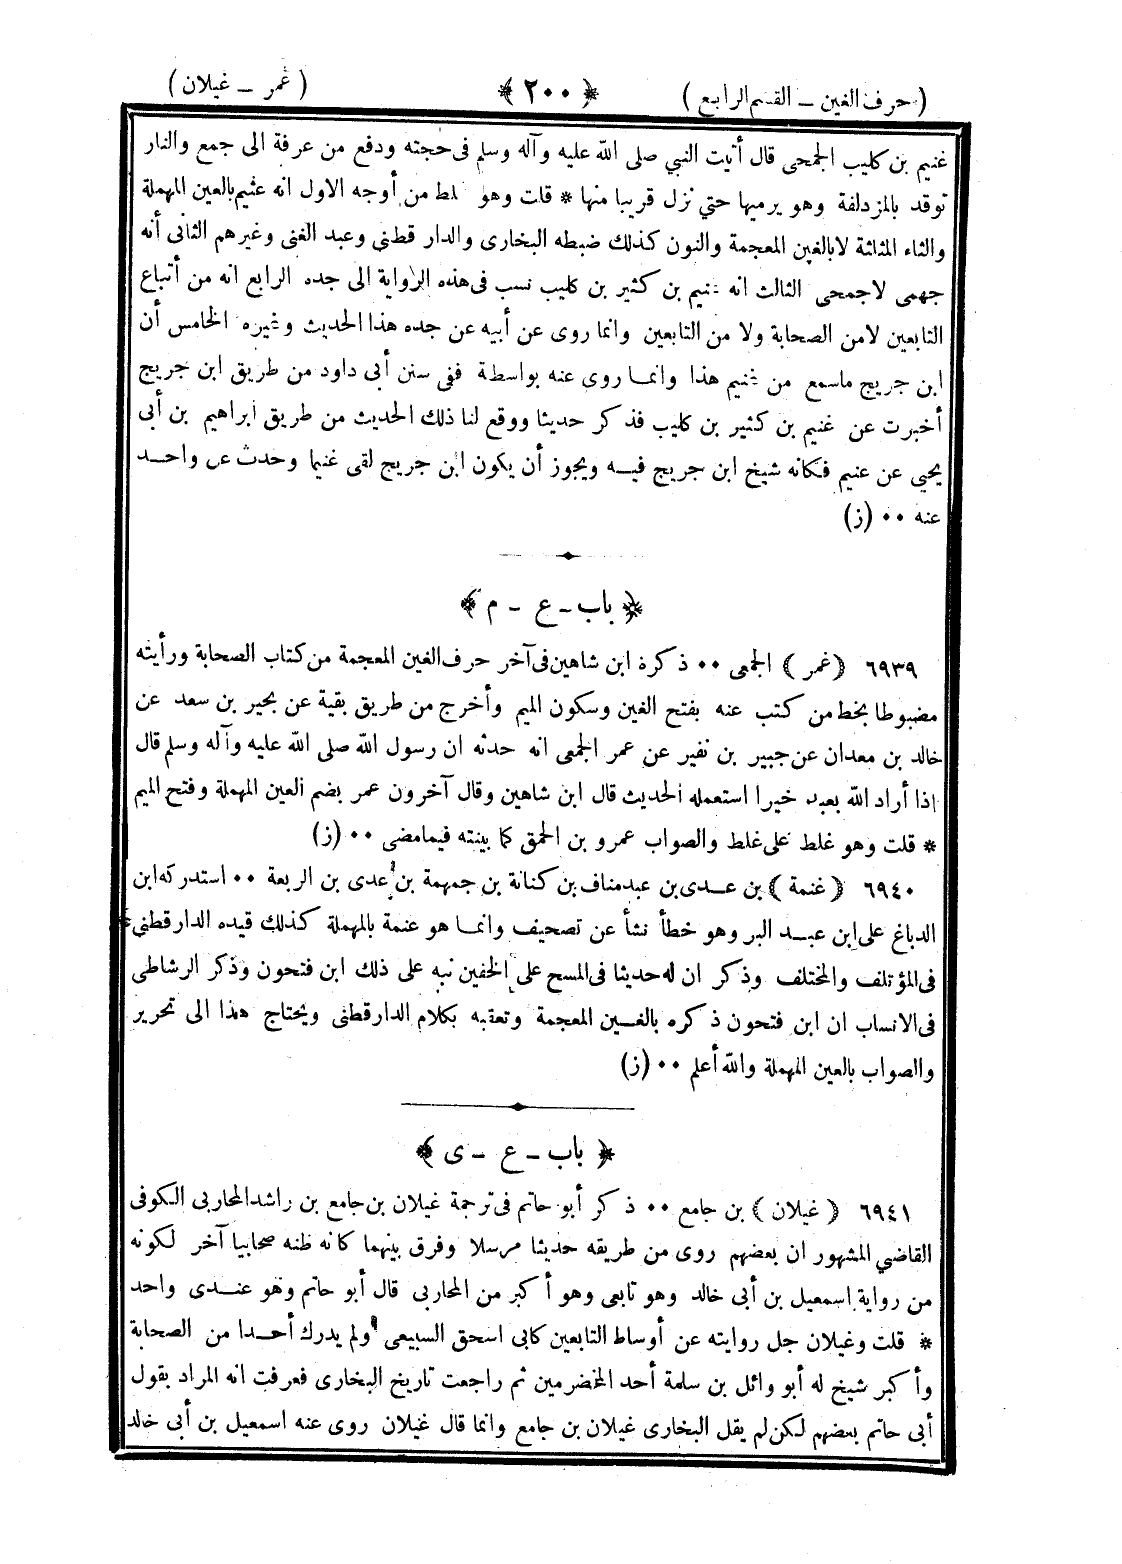 ( حرف الغين – القسم الرابع ) ﴿ ٢٠٠ ﴾ ( غمر – غيلان )
غنيم بن كليب الجمحى قال أتيت النبي صلى الله عليه وآله وسلم فى حجته ودفع من عرفة الى جمع والنار
توقد بالمزدلفة وهو يرميها حتي نزل قريبا منها * قلت وهو غلط من أوجه الاول انه عثيم بالعين المهملة
والثاء المثلثة لا بالغين المعجمة والنون كذلك ضبطه البخارى والدار قطنى وعبد الغنى وغيرهم الثانى أنه
جهمى لا جمحى الثالث انه غنيم بن كثير بن كليب نسب فى هذه الرواية الى جده الرابع انه من أتباع
التابعين لا من الصحابة ولا من التابعين وانما روى عن أبيه عن جده هذا الحديث وغيره الخامس أن
ابن جريج ماسمع من غنيم هذا وانمـا روى عنه بواسطة ففى سنن أبى داود من طريق ابن جريج
أخبرت عن غنيم بن كثير بن كليب فذكر حديثا ووقع لنا ذلك الحديث من طريق ابراهيم بن أبى
يحيي عن عنيم فكانه شيخ ابن جريج فيـه ويجوز أن يكون ابن جريج لقى غنيما وحدث عن واحـد
عنه ٠٠ (ز)
﴿ باب ـ غ ـ م ﴾
٦٩٣٩ ﴿ غمر ﴾ الجمعى ٠٠ ذكره ابن شاهين فى آخر حرف الغين المعجمة من كتاب الصحابة ورأيته
مضبوطا بخط من كتب عنه بفتح الغين وسكون الميم وأخرج من طريق بقية عن بحير بن سعد عن
خالد بن معدان عن جبير بن نفير عن عمر الجمعى انه حدثه ان رسول الله صلى الله عليه وآله وسلم قال
اذا أراد الله بعبد خيرا استعمله الحديث قال ابن شاهين وقال آخرون عمر بضم العين المهملة وفتح الميم
* قلت وهو غلط على غلط والصواب عمرو بن الحمق كما بينته فيما مضى ٠٠ (ز)
٦٩٤٠ ﴿ غنمة ﴾ بن عـدى بن عبد مناف بن كنانة بن جمهمة بن عدى بن الربعة ٠٠ استدركه ابن
الدباغ على ابن عبـد البر وهو خطأ نشأ عن تصحيف وانمـا هو عنمة بالمهملة كذلك قيده الدارقطنى
فى المؤتلف والمختلف وذكر ان له حديثا فى المسح على الخفين نبه على ذلك ابن فتحون وذكر الرشاطى
فى الانساب ان ابن فتحون ذكره بالغـين المعجمة وتعقبه بكلام الدارقطنى ويحتاج هذا الى تحرير
والصواب بالعين المهملة والله أعلم ٠٠ (ز)
﴿ باب ـ غ ـ ى ﴾
٦٩٤١ ﴿ غيلان ﴾ بن جامع ٠٠ ذكر أبو حاتم فى ترجمة غيلان بن جامع بن راشد المحاربى الكوفى
القاضي المشهور ان بعضهم روى من طريقه حديثا مرسلا وفرق بينهما كانه ظنه صحابيا آخر لكونه
من رواية اسمعيل بن أبى خالد وهو تابعى وهو أكبر من المحاربى قال أبو حاتم وهو عنـدى واحد
* قلت وغيلان جل روايته عن أوساط التابعين كابى اسحق السبيعى ولم يدرك أحـدا من الصحابة
وأكبر شيخ له أبو وائل بن سلمة أحد المخضرمين ثم راجعت تاريخ البخارى فعرفت انه المراد بقول
أبى حاتم بعضهم لكن لم يقل البخارى غيلان بن جامع وانما قال غيلان روى عنه اسمعيل بن أبى خالد